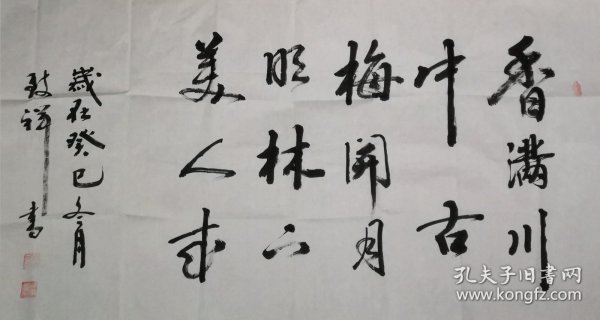 香滿川
中古
梅開月
明林下
美人来
歲在癸巳冬月
致祥書
孔夫子旧书网
www.kongfz.com